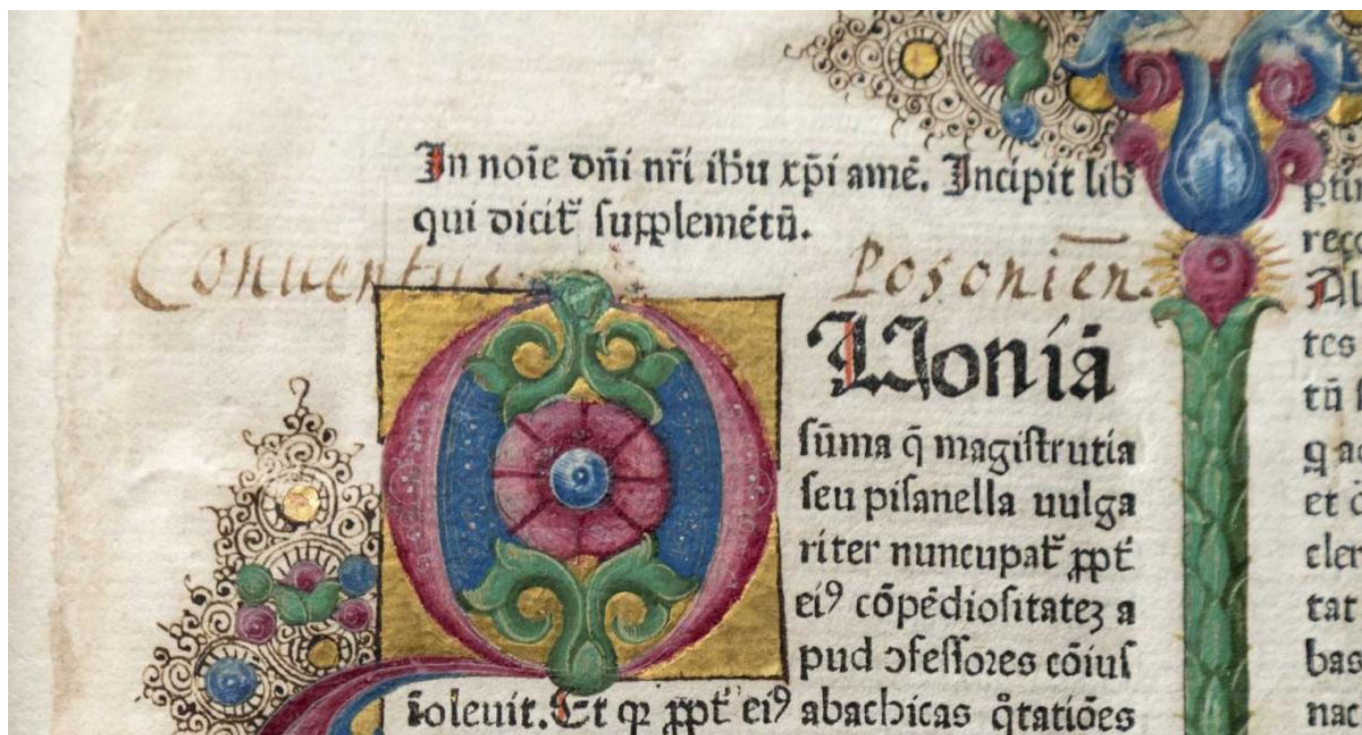 In noīe dn̄i nr̄i ih̄u xp̄i amē. Incipit lib
qui dicit᷑ supplemētū.
Conuentus Posonien̄.
QUoniā
sūma q̄ magistrutia
seu pisanella uulga
riter nuncupat᷑ ꝓpt᷑
eiꝰ cōpēdiositateꝫ a
pud ↄfessores cōiuſ
īoleuit. Et qꝛ ꝓpt᷑ eiꝰ abachicas q̊tatiōes
ꝑtin
reco
Al
tes
tū
ꝗ ac
et
cler
tat
bas
nac